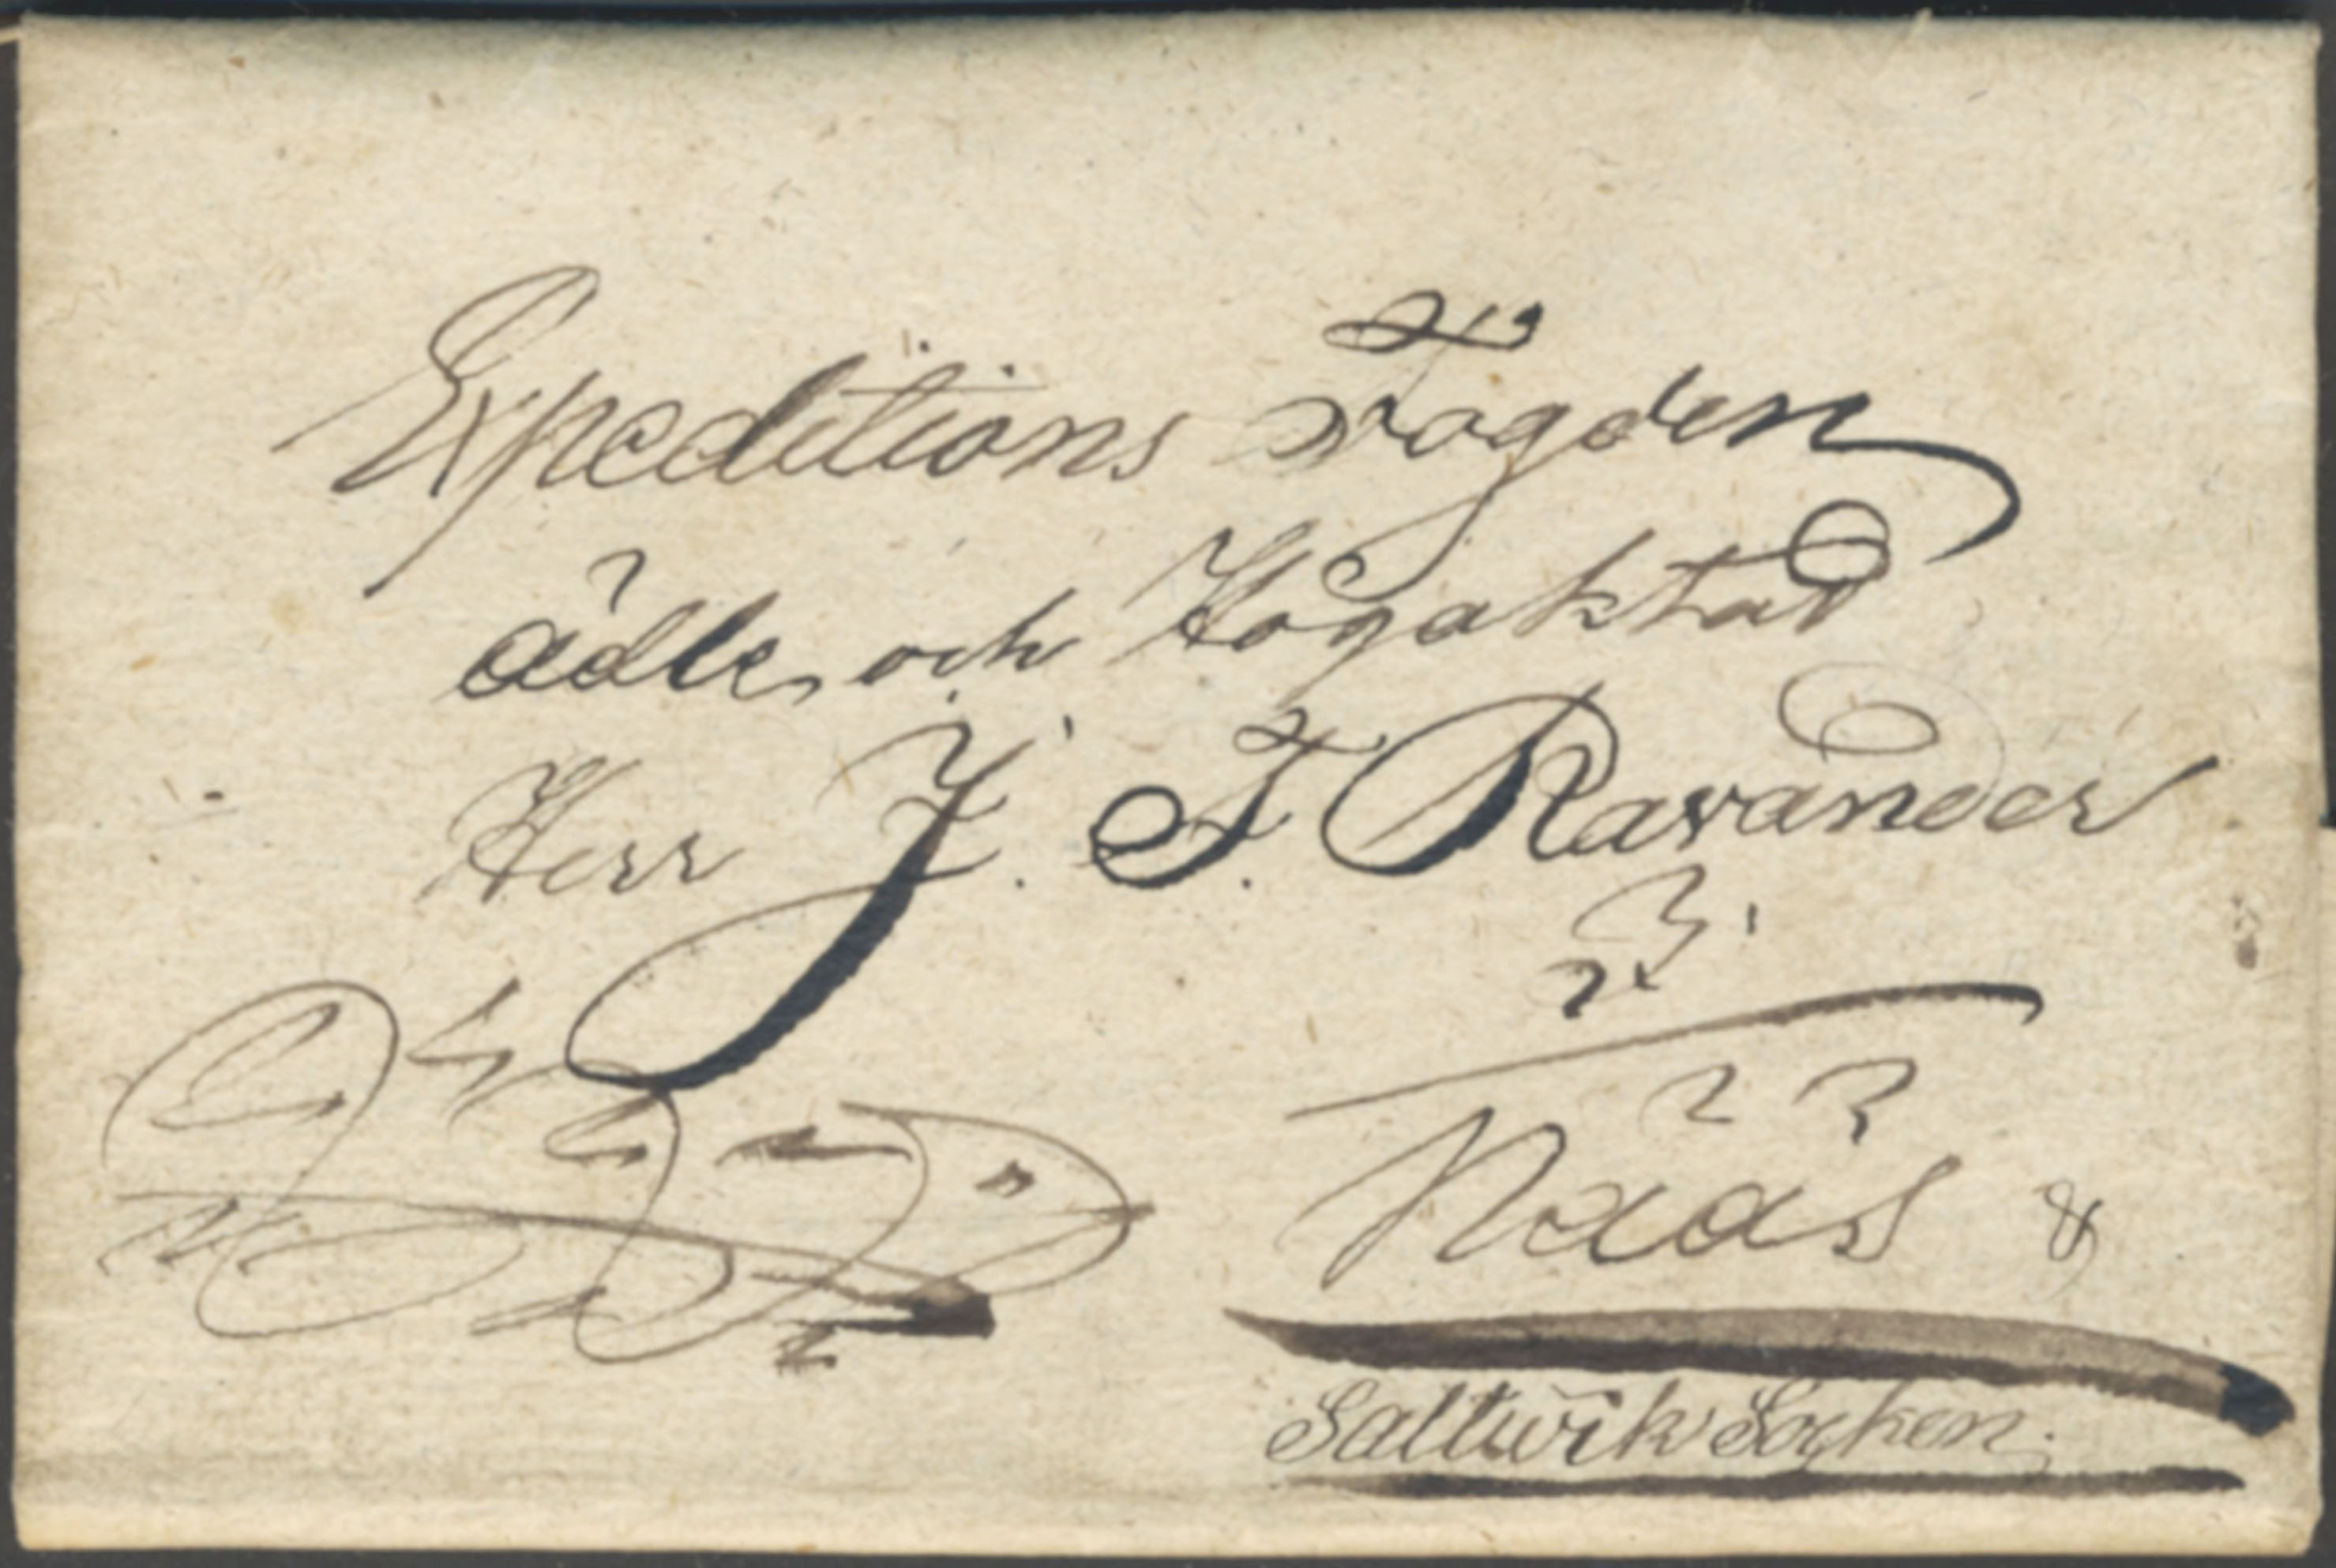 Expeditions Fogden
ädle och Högaktad
Herr J. F. Ravander
Nääs
Saltwik Socken.